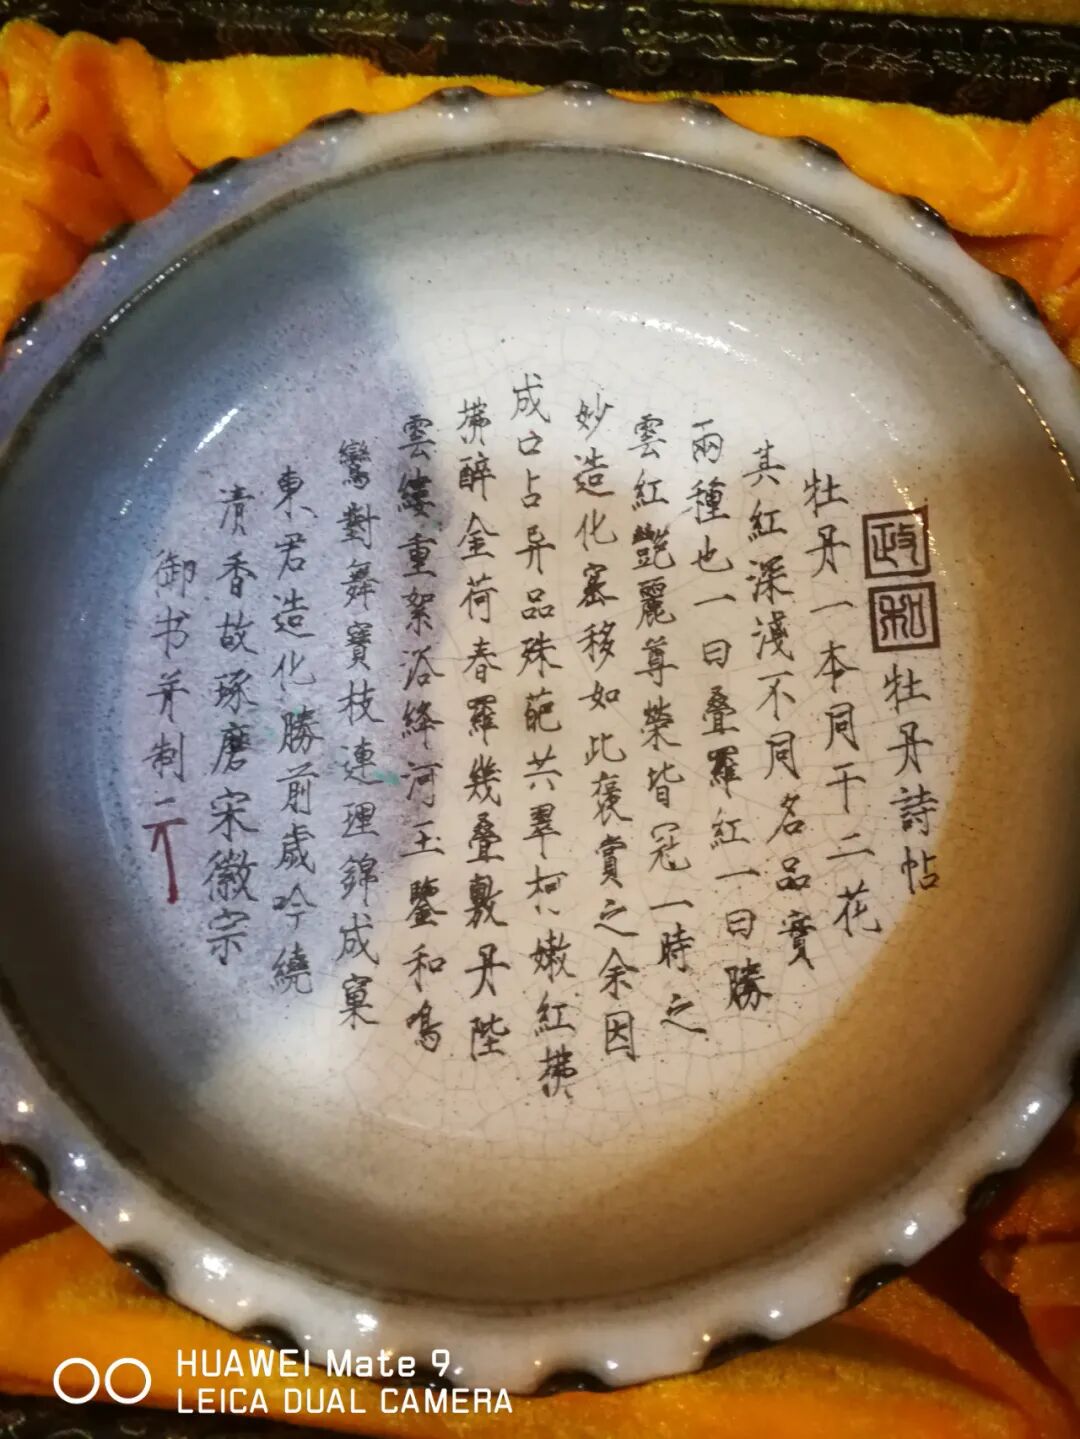 政和
牡丹詩帖
牡丹一本同干二花
其紅深淺不同名品實
兩種也一曰叠羅紅一曰勝
雲紅艷麗尊榮皆冠一時之
妙造化密移如此褒賞之余因
成口占异品殊葩共翠柯嫩紅拂
拂醉金荷春羅幾叠敷丹陛
雲縷重縈浴絳河玉鑒和鳴
鸞對舞寶枝連理錦成窠
東君造化勝前歲吟繞
清香故琢磨宋徽宗
御书并制
HUAWEI Mate 9
LEICA DUAL CAMERA